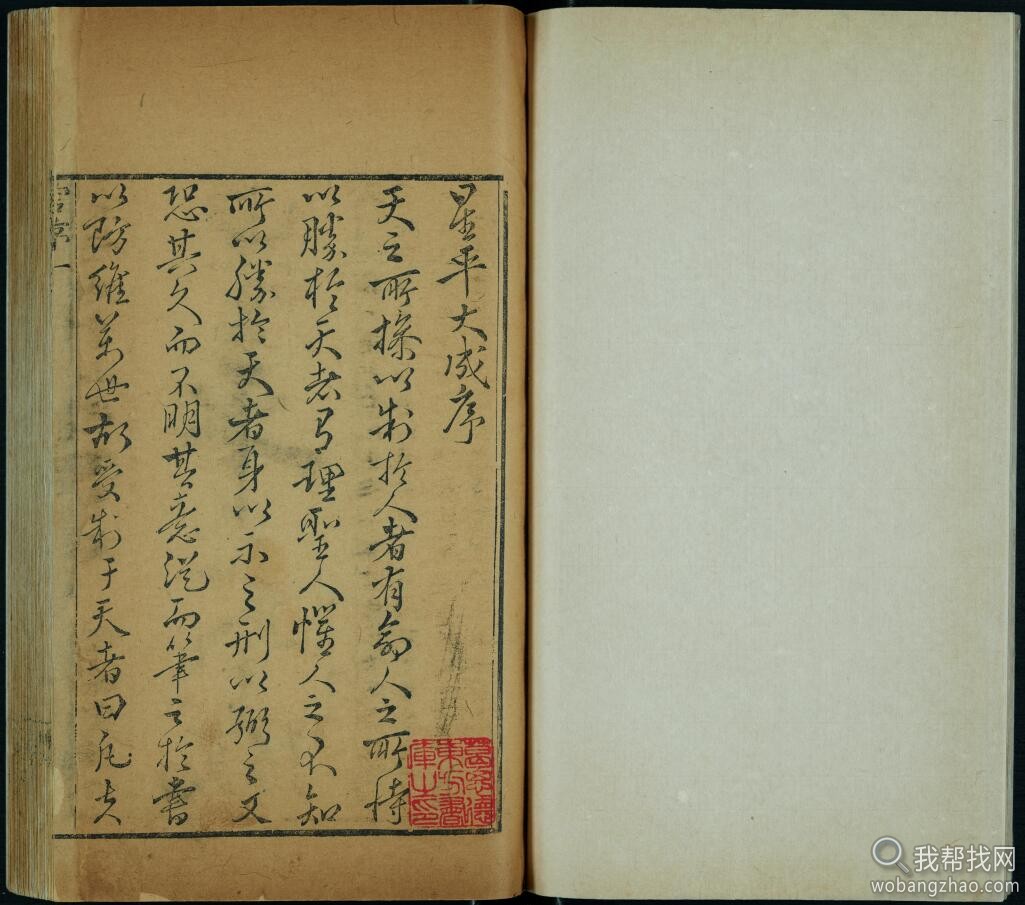 星平大成序
天之所操以制於人者有命人之所恃
以勝於天者有理聖人懼人之不知
所以勝於天者身以示之刑以弼之又
恐其久而不明其意從而筆之於書
以防維萬世故受制于天者曰凡夫
序一
葛思德
東方書
庫之印
我帮找网
wobangzhao.com